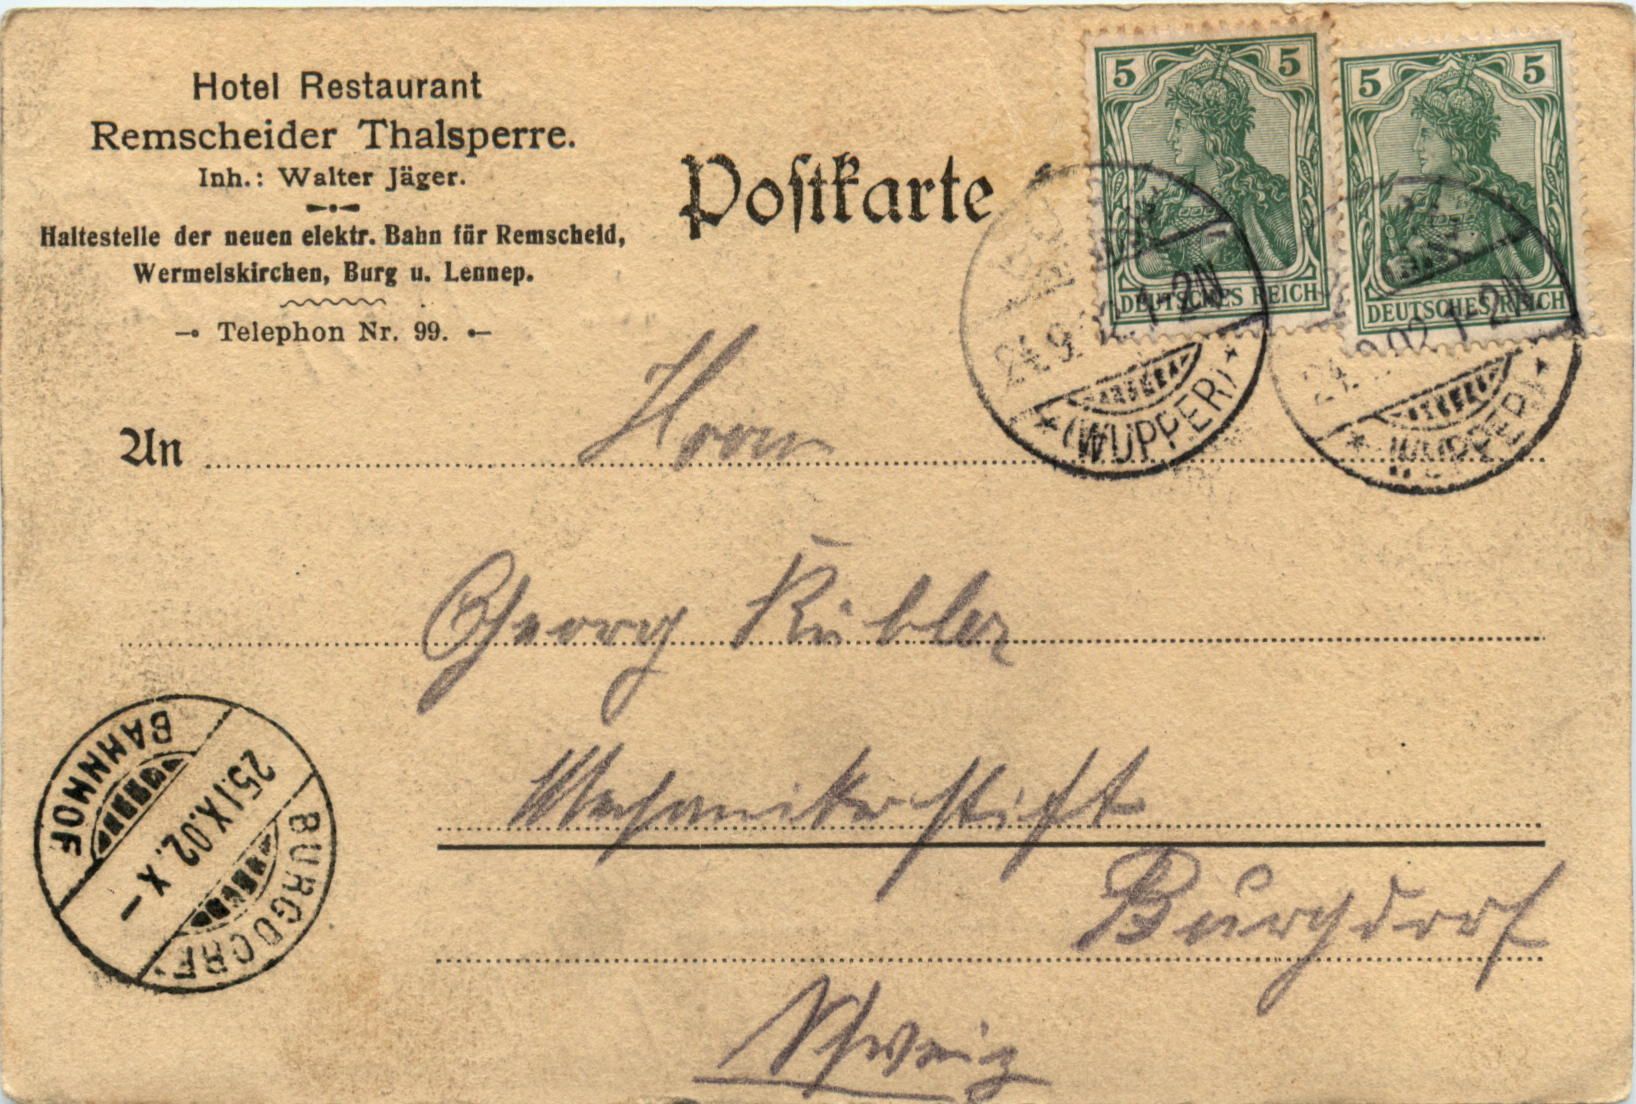 Hotel Restaurant
Remscheider Thalsperre.
Inh.: Walter Jäger.
Haltestelle der neuen elektr. Bahn für Remscheid,
Wermelskirchen, Burg u. Lennep.
Telephon Nr. 99.
Postkarte
5 5
DEUTSCHES REICH
5 5
DEUTSCHES REICH
24.9. 1-2N
* (WUPPER) *
24.9.02 1-2N
* (WUPPER) *
An Herrn
Georg Kübler
Mechaniker
Burgdorf
Schweiz
BURGDORF
25.IX.02.X—
BAHNHOF